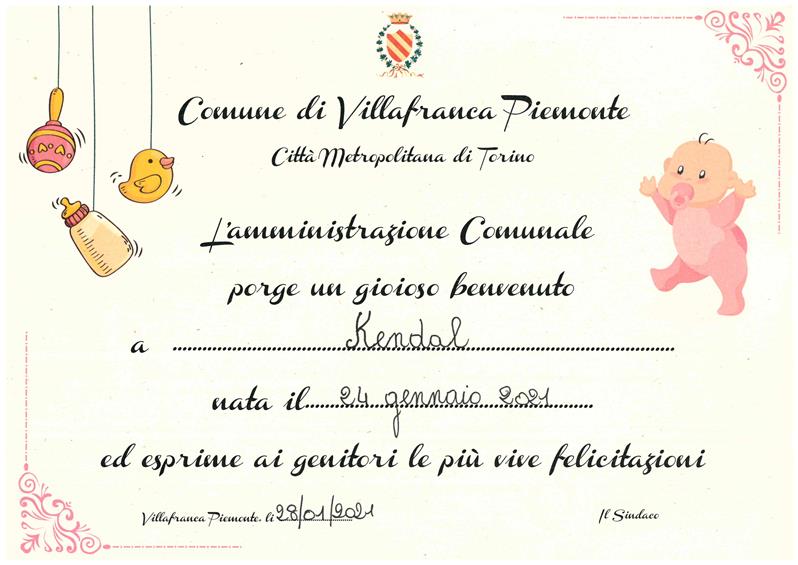 Comune di Villafranca Piemonte
Città Metropolitana di Torino
L'amministrazione Comunale
porge un gioioso benvenuto
a Kendal
nata il 24 gennaio 2021
ed esprime ai genitori le più vive felicitazioni
Villafranca Piemonte, li 28/01/2021 Il Sindaco